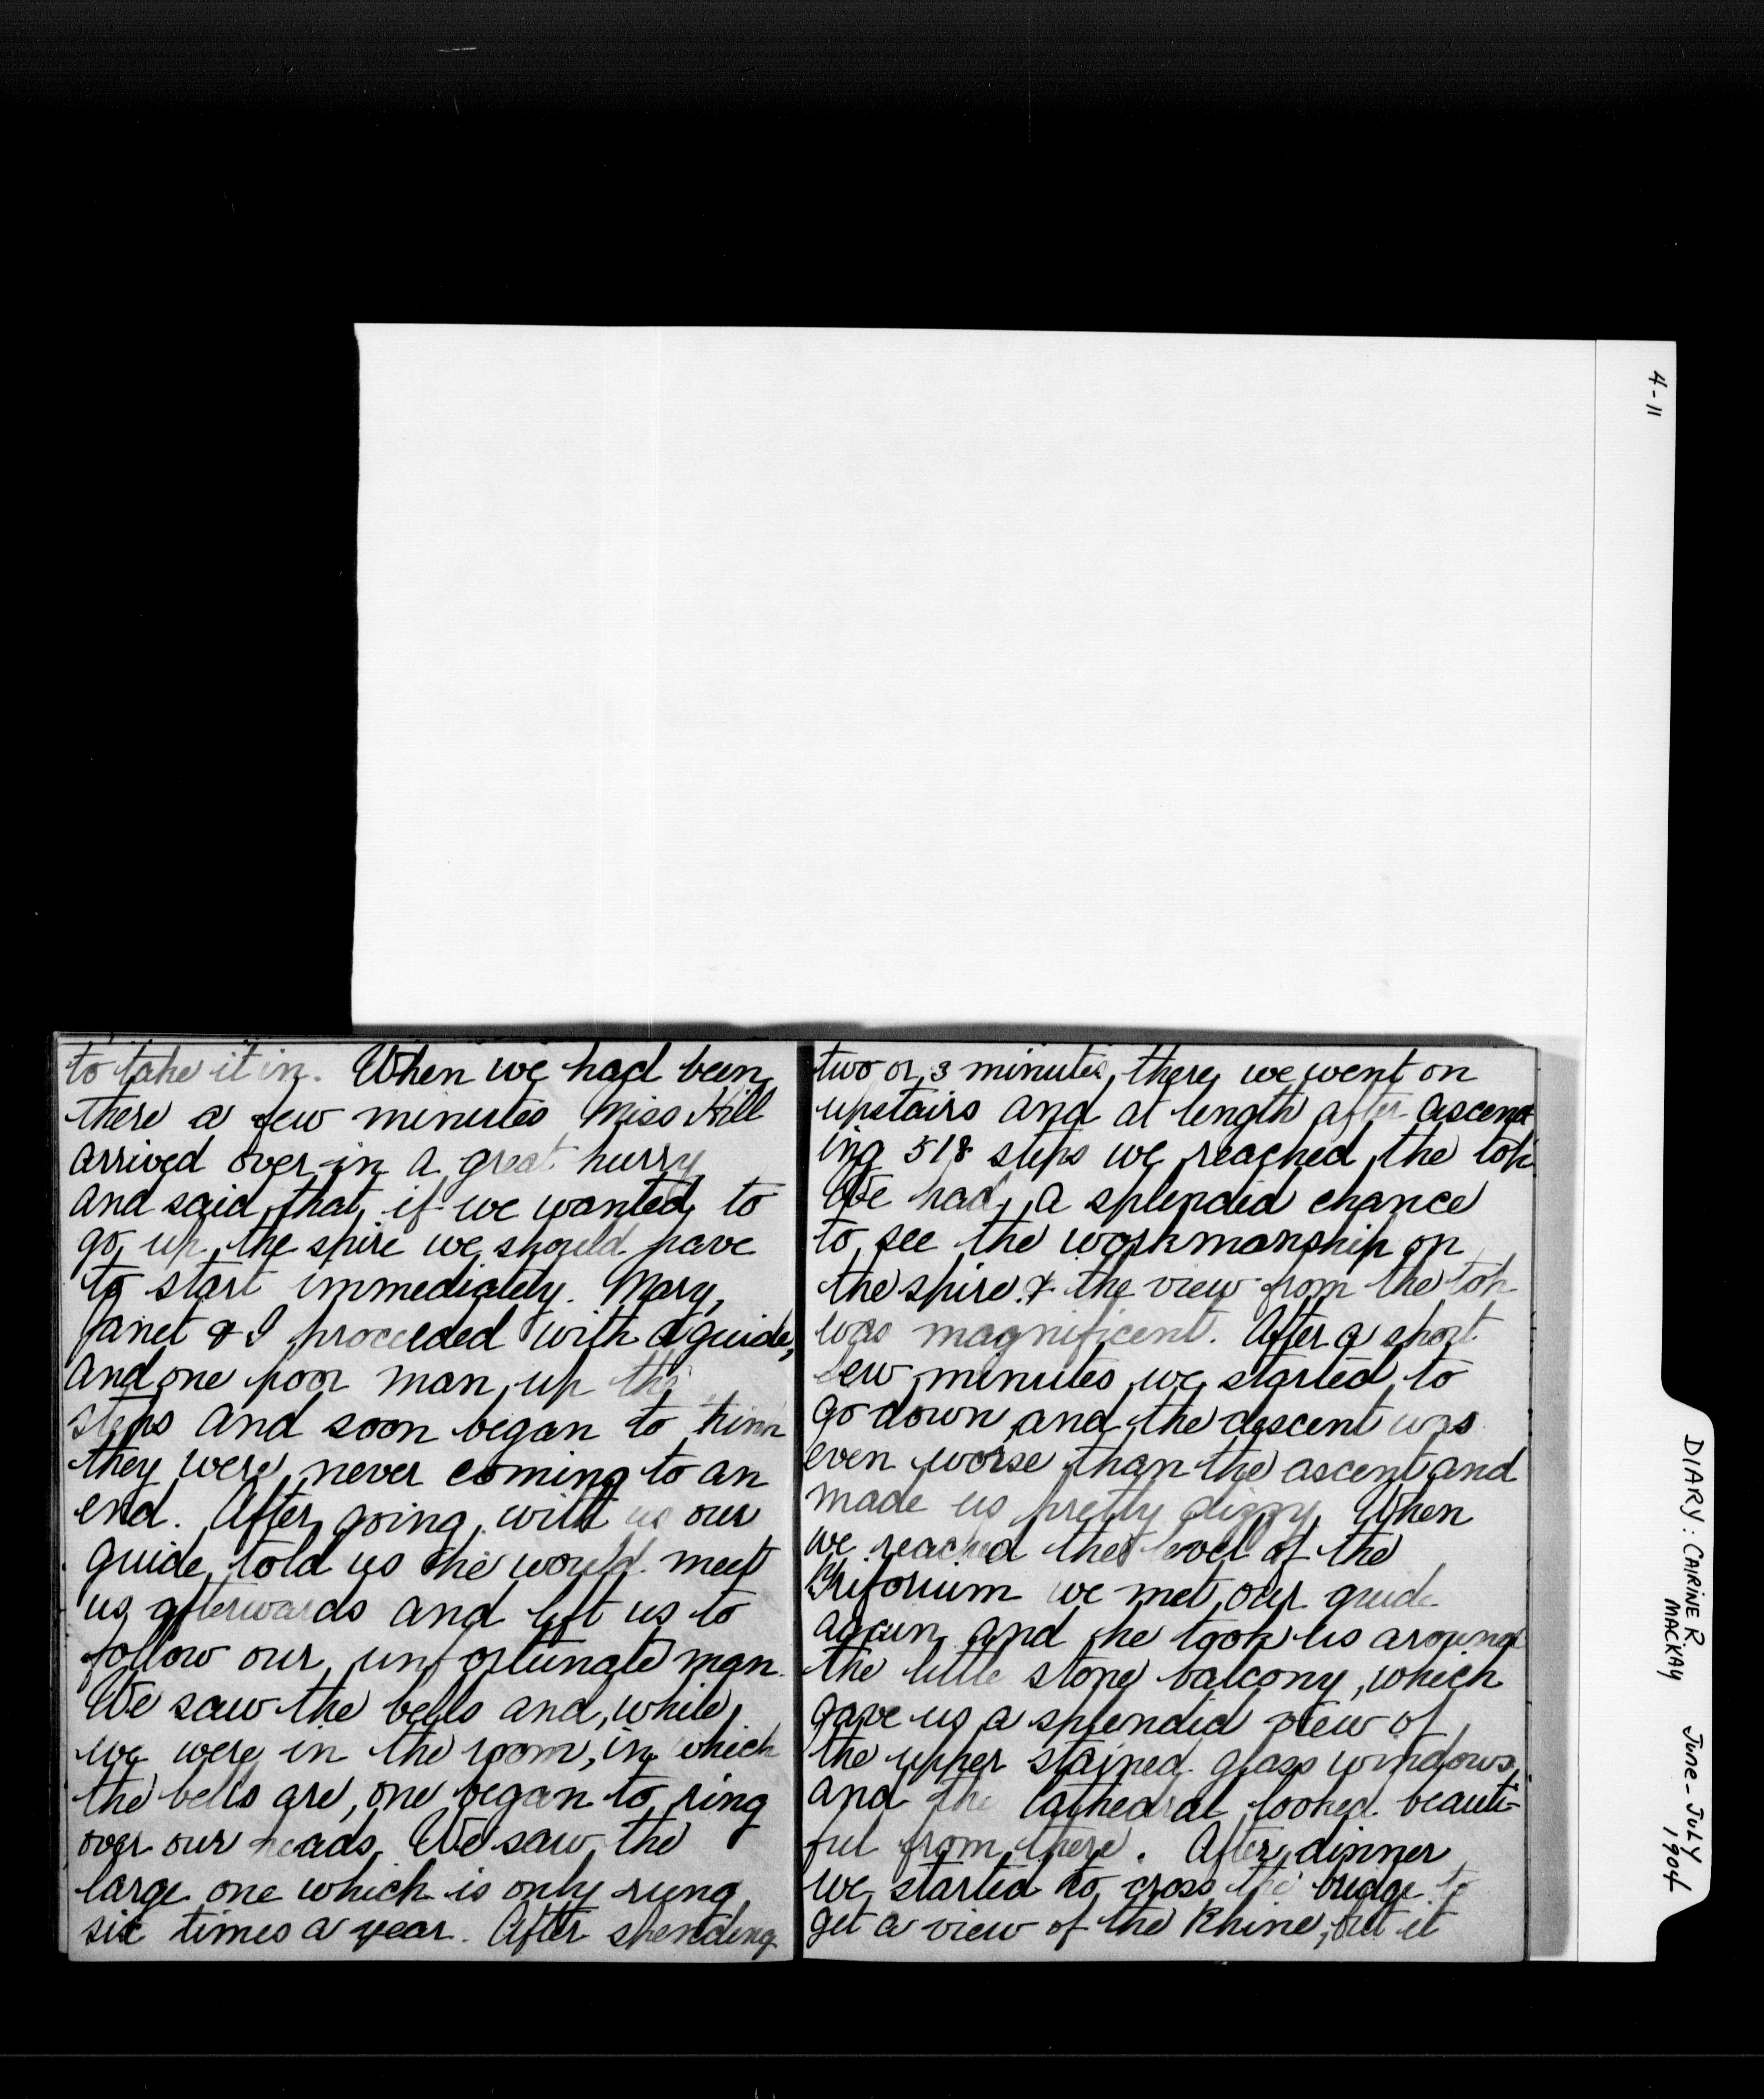 4-11
DIARY: CAIRINE R. MACKAY June-July 1904
to take it in. When we had been
there a few minutes Miss Hill
arrived over in a great hurry
and said that, if we wanted to
go up the spire we should have
to start immediately. Mary,
Janet & I proceeded with a guide,
and one poor man, up the
steps and soon began to think
they were never coming to an
end. After going with us our
guide told us he would meet
us afterwards and left us to
follow our unfortunate man.
We saw the bells and, while,
we were in the room, in which
the bells are, one began to ring
over our heads. We saw the
large one which is only rung
six times a year. After spending
two or 3 minutes, there, we went on
upstairs and at length after ascend
ing 518 steps we reached the top.
We had a splendid chance
to see the workmanship on
the spire & the view from the top
was magnificent. After a short
few minutes we started to
go down and the descent was
even worse than the ascent and
made us pretty dizzy. When
we reached the level of the
Triforium we met our guide
again and he took us around
the little stone balcony, which
gave us a splendid view of
the upper stained glass windows,
and the Cathedral looked beauti-
ful from there. After dinner
we started to cross the bridge to
get a view of the Rhine, but it